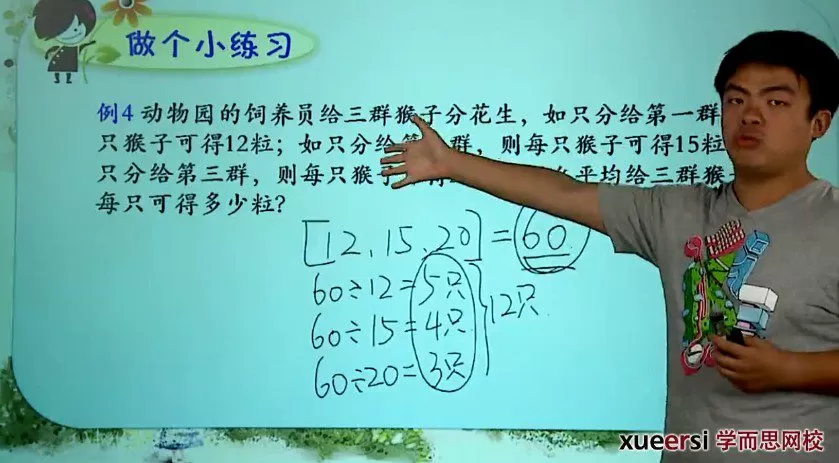 做个小练习
例4 动物园的饲养员给三群猴子分花生，如只分给第一群
只猴子可得12粒；如只分给第 群，则每只猴子可得15粒
只分给第三群，则每只猴子 平均给三群猴
每只可得多少粒？
[12,15,20]=60.
60÷12=5只
60÷15=4只
60÷20=3只
12只.
xueersi 学而思网校